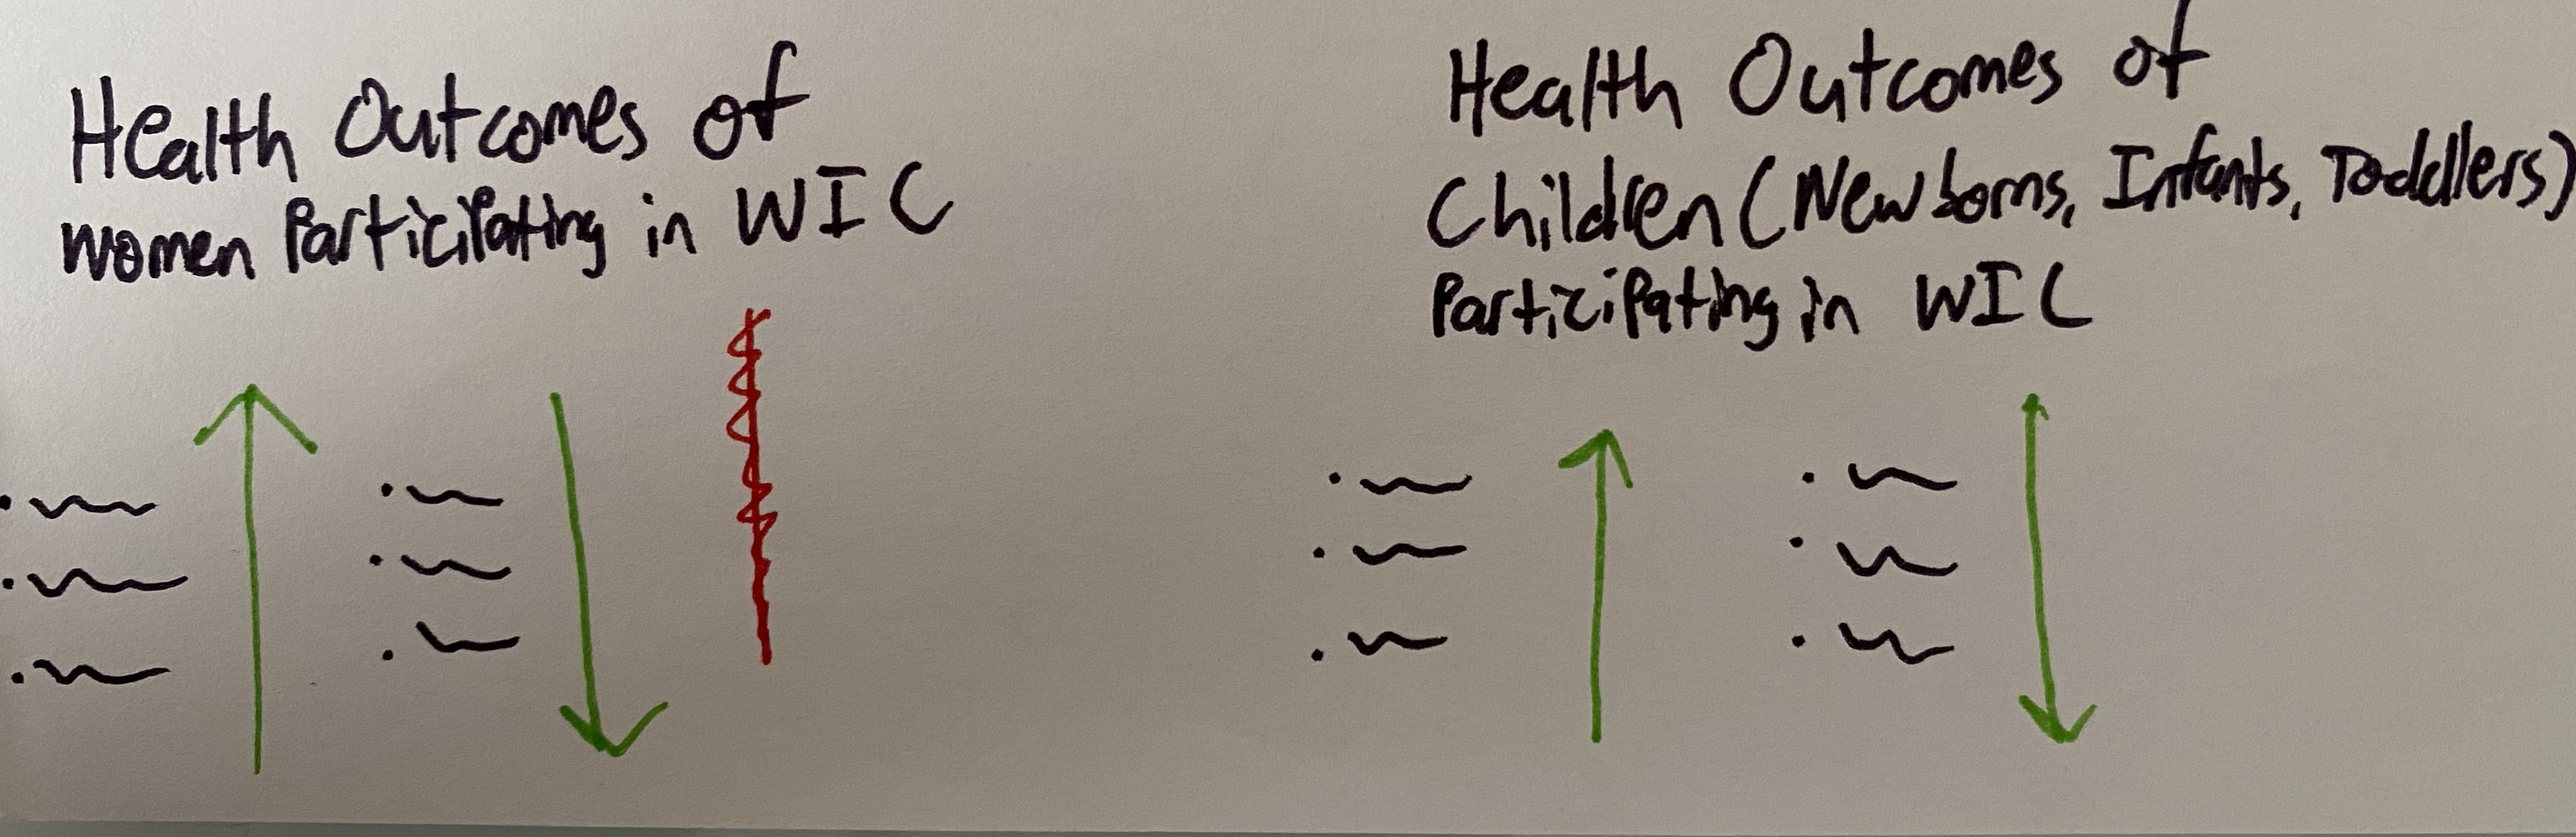 Health Outcomes of
women Participating in WIC
Health Outcomes of
Children (Newborns, Infants, Toddlers)
Participating in WIC